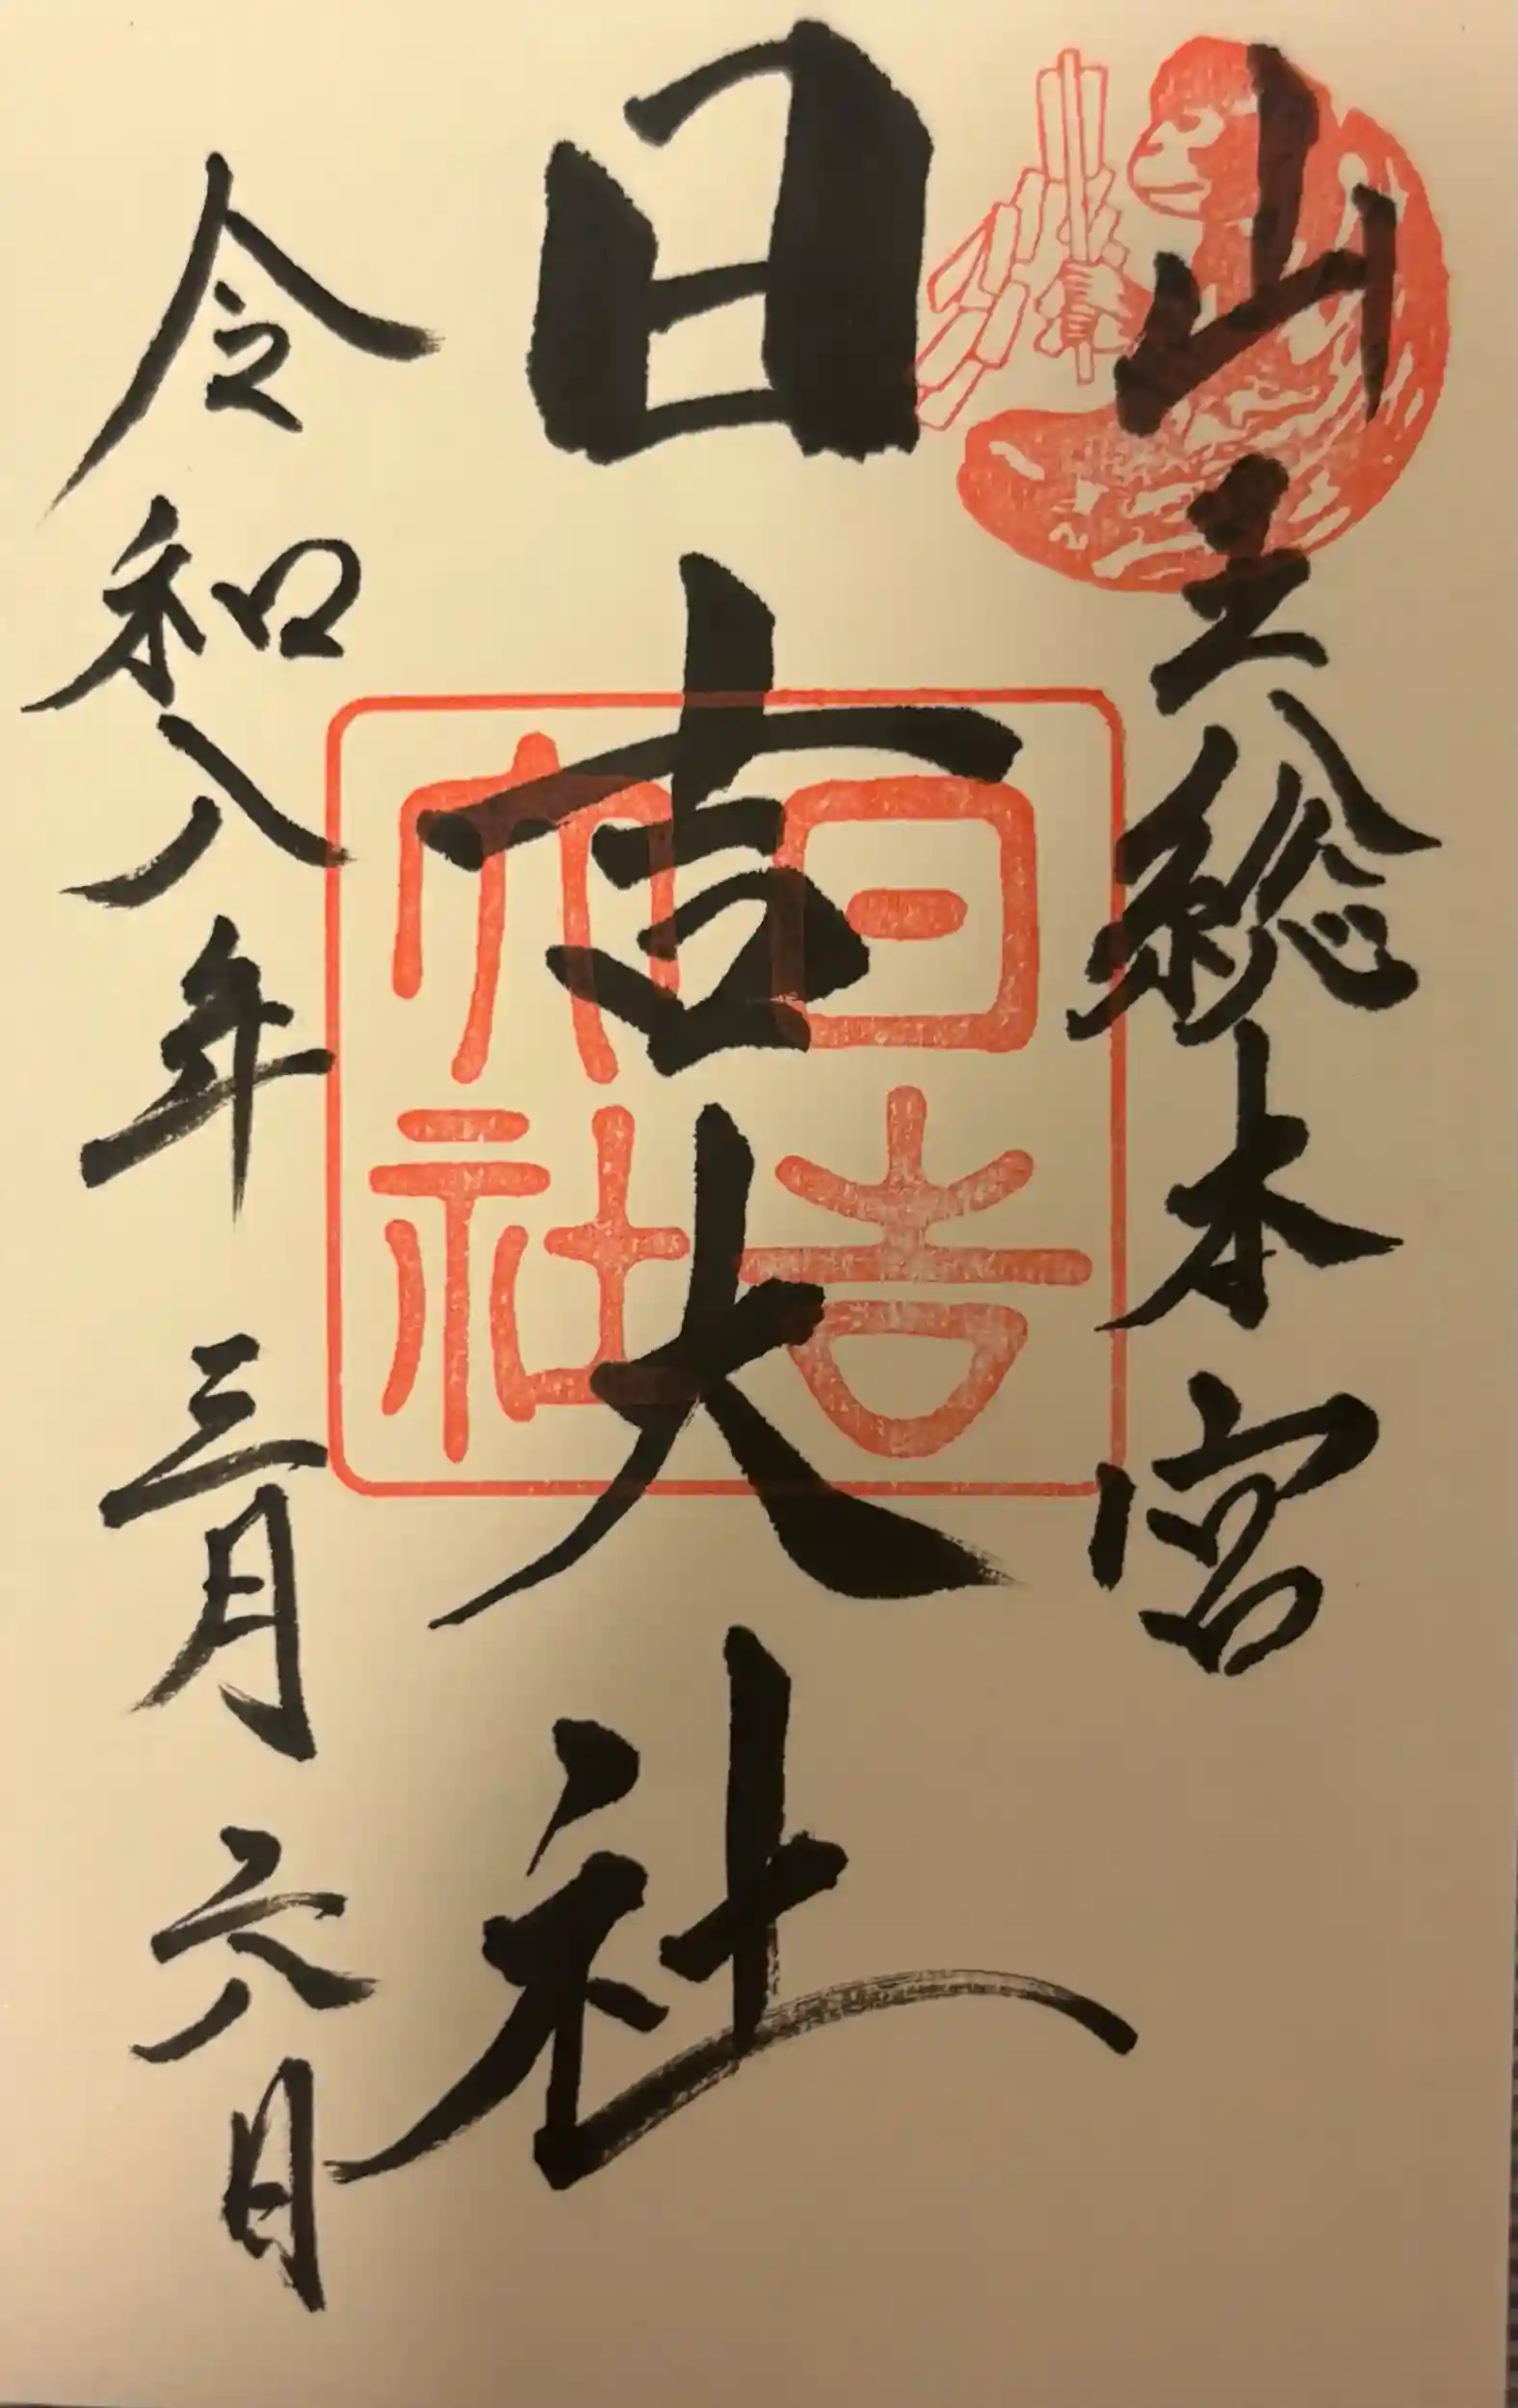 山王総本宮
日吉大社
日吉大社
令和八年三月六日